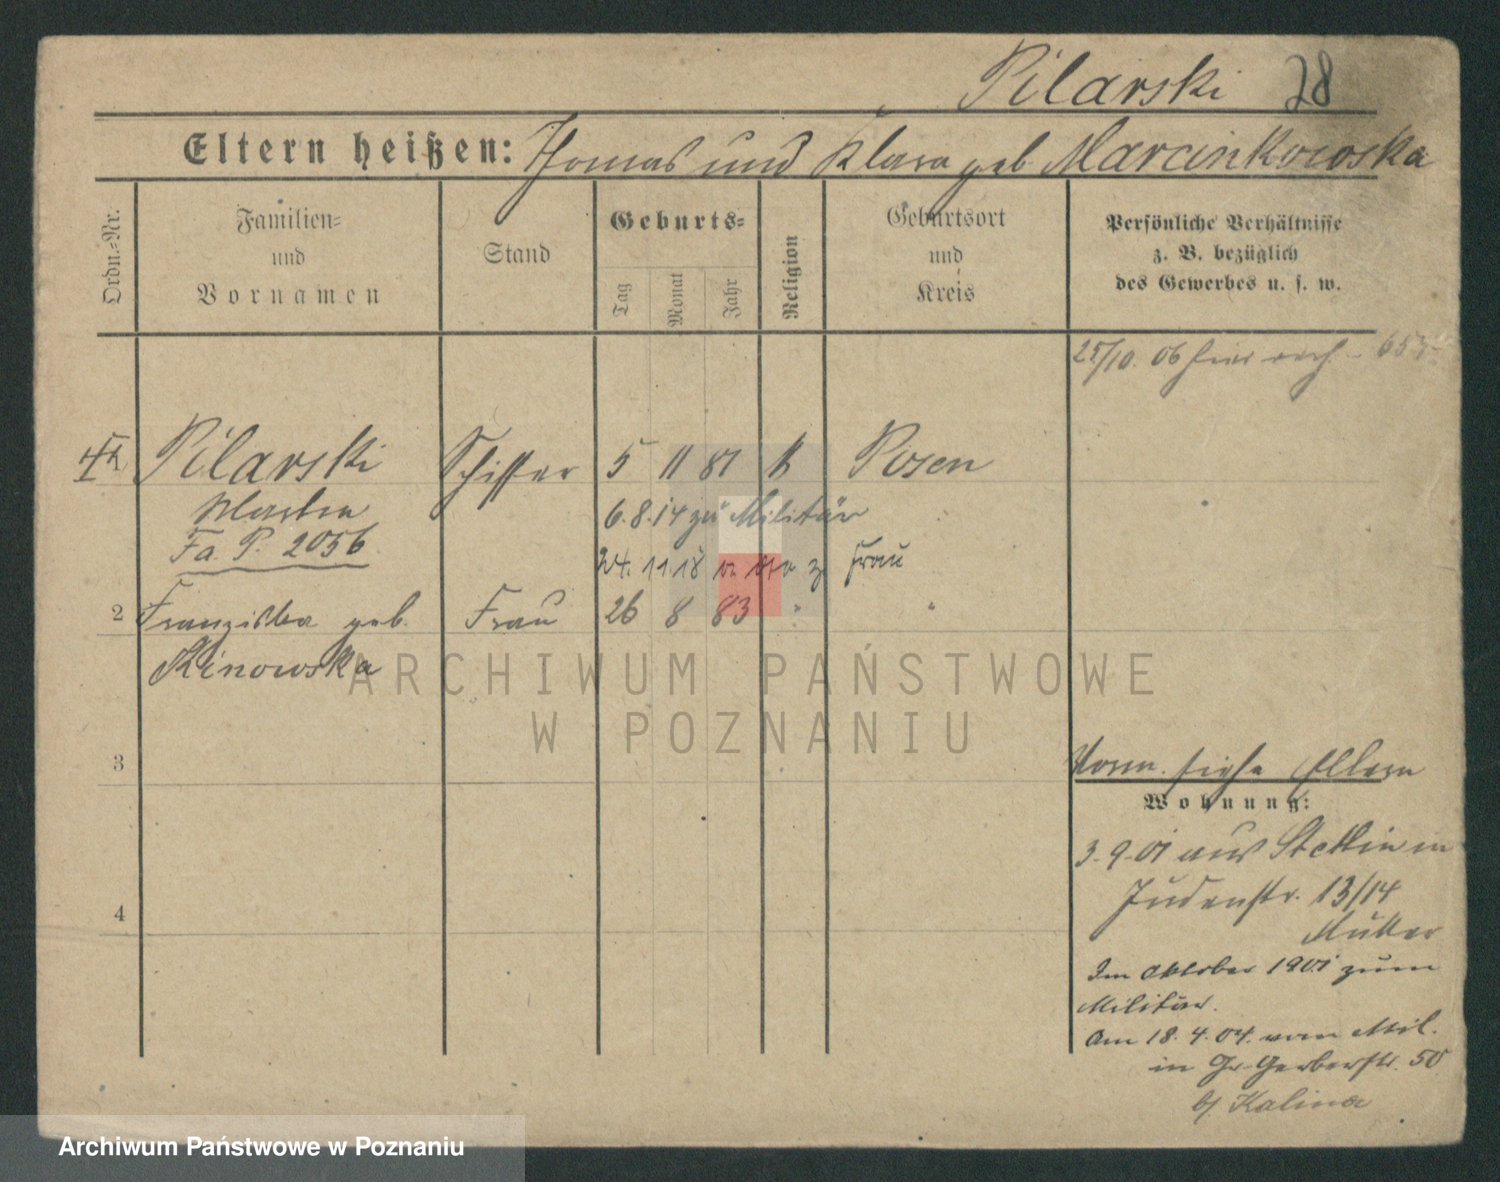 Pilarski 28
Eltern heißen: Thomas und Klara geb Marcinkowska
Ordn.=Nr.
Familien=
und
Vornamen
Stand
Geburts=
Tag
Monat
Jahr
Religion
Geburtsort
und
Kreis
Persönliche Verhältnisse
z. B. bezüglich
des Gewerbes u. s. w.
25/10. 06 hier
Pilarski Schiffer 5 11 81 k Posen
Fa. P. 2056
6.8.14 zu Militär
24. 11 18 z Frau
2 Franziska geb. Frau 26 8 83 " "
Kinowska
3
4
Vorm. siehe Eltern
Wohnung:
3.9.01 aus Stettin in
Judenstr. 13/14
Mutter
Im Oktober 1901 zum
Militär.
Am 18. 4. 04. vom Mil.
in Gr. Gerberstr. 50
b/ Kalina
ARCHIWUM PAŃSTWOWE
W POZNANIU
Archiwum Państwowe w Poznaniu